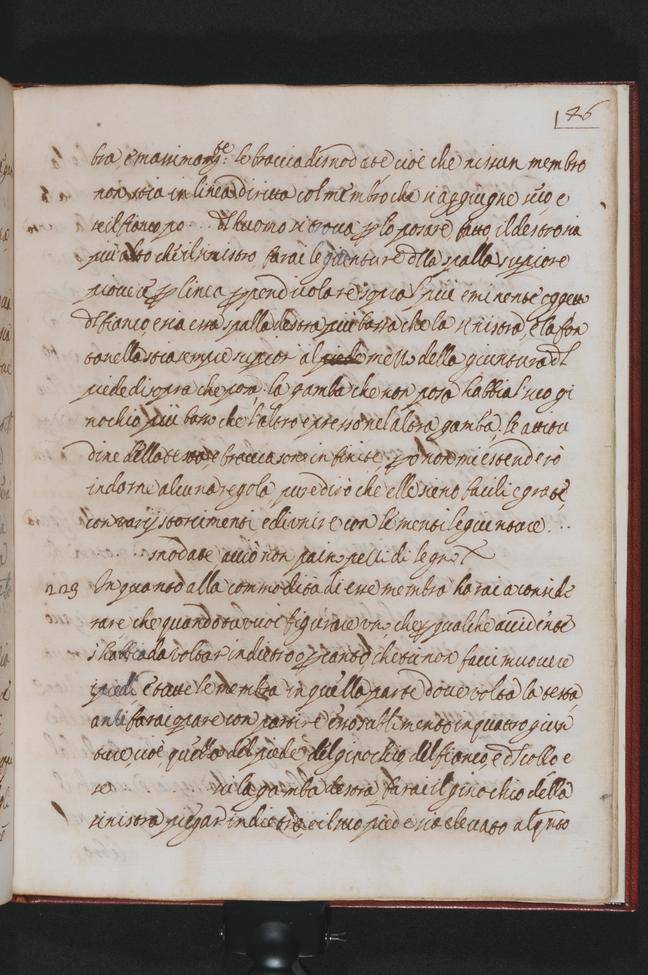 46
bra e massimam.te le braccia disnodate cioè che nissun membro
non stia in linea diritta col membro che si aggiugne seco, e
se il fianco po... dl huomo si trova p lo posare fatto il destro sia
più alto che il sinistro farai le giunture dlla spalla supiore
piovere p linea ppendicolare sopra l più eminente oggetto
dl fianco e sia essa spalla destra più bassa che la sinistra, e la fon
tanella stia sempre supior al mezzo della giuntura dl
piede di sopra che posa la gamba che non posa habbia l suo gi
nochio più basso che l'altro e presso nel'altra gamba, le attitu
dine della testa e braccia sono infinite, pò non mi estenderò
in darne alcuna regola pure dirò che elle sieno facili e grate
con varij storcimenti e si unire con le menti le giunture ...
... snodate acciò non pain pezzi di legno
229 In quanto alla commodità di esse membra harai a conside
rare che quando tu vuoi figurare uno che p qualche accidente
s'habbia da voltar indietro o p canto, che tu non facci muovere
i piedi e tutte le membra in quella parte dove volta la testa
anti farai oprare con partire esso suoltimento in quatro giun
ture cioè, quella del piede, del ginochio del fianco, e dl collo e
se su la gamba destra farai il ginochio della
sinistra piegar indietro, e il suo piede sia elevato alquto